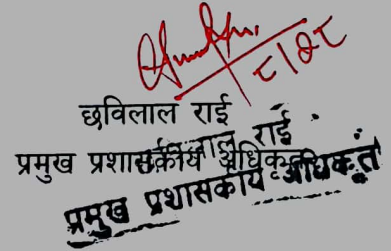 ८।२८
छविलाल राई
प्रमुख प्रशासकीय अधिकृत
लाल राई
प्रमुख प्रशासकीय अधिकृत